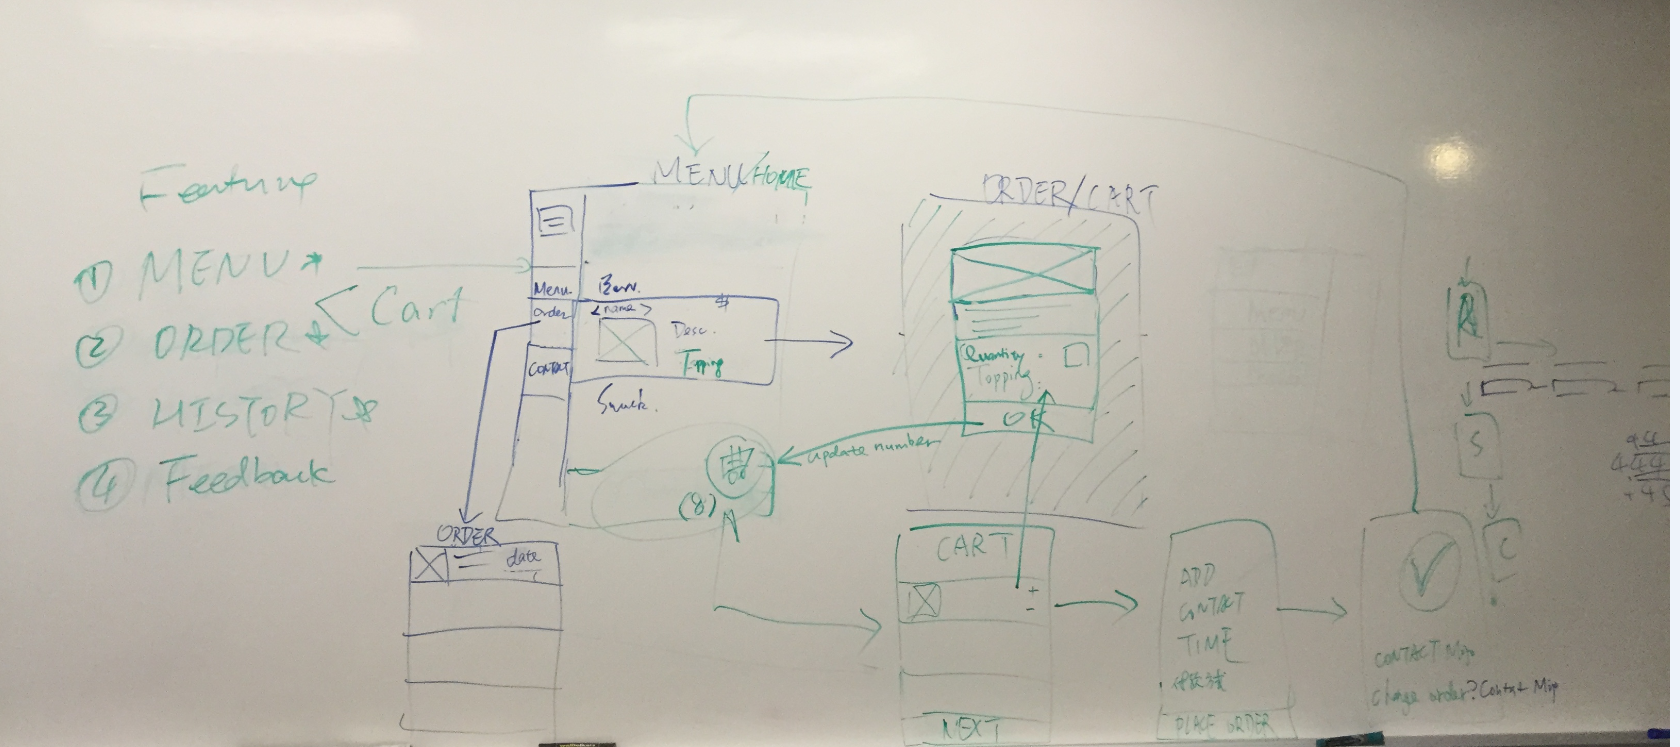 Feature
① MENU *
Cart
② ORDER *
③ HISTORY *
④ Feedback
MENU/HOME
Menu
Order
CONTACT
< name >
$
Desc.
Topping
(8)
update number
ORDER
date
ORDER/CART
Quantity :
Topping :
OK
CART
+
-
NEXT
ADD
CONTACT
TIME
PLACE ORDER
CONTACT
change order? Contact
R
S
C